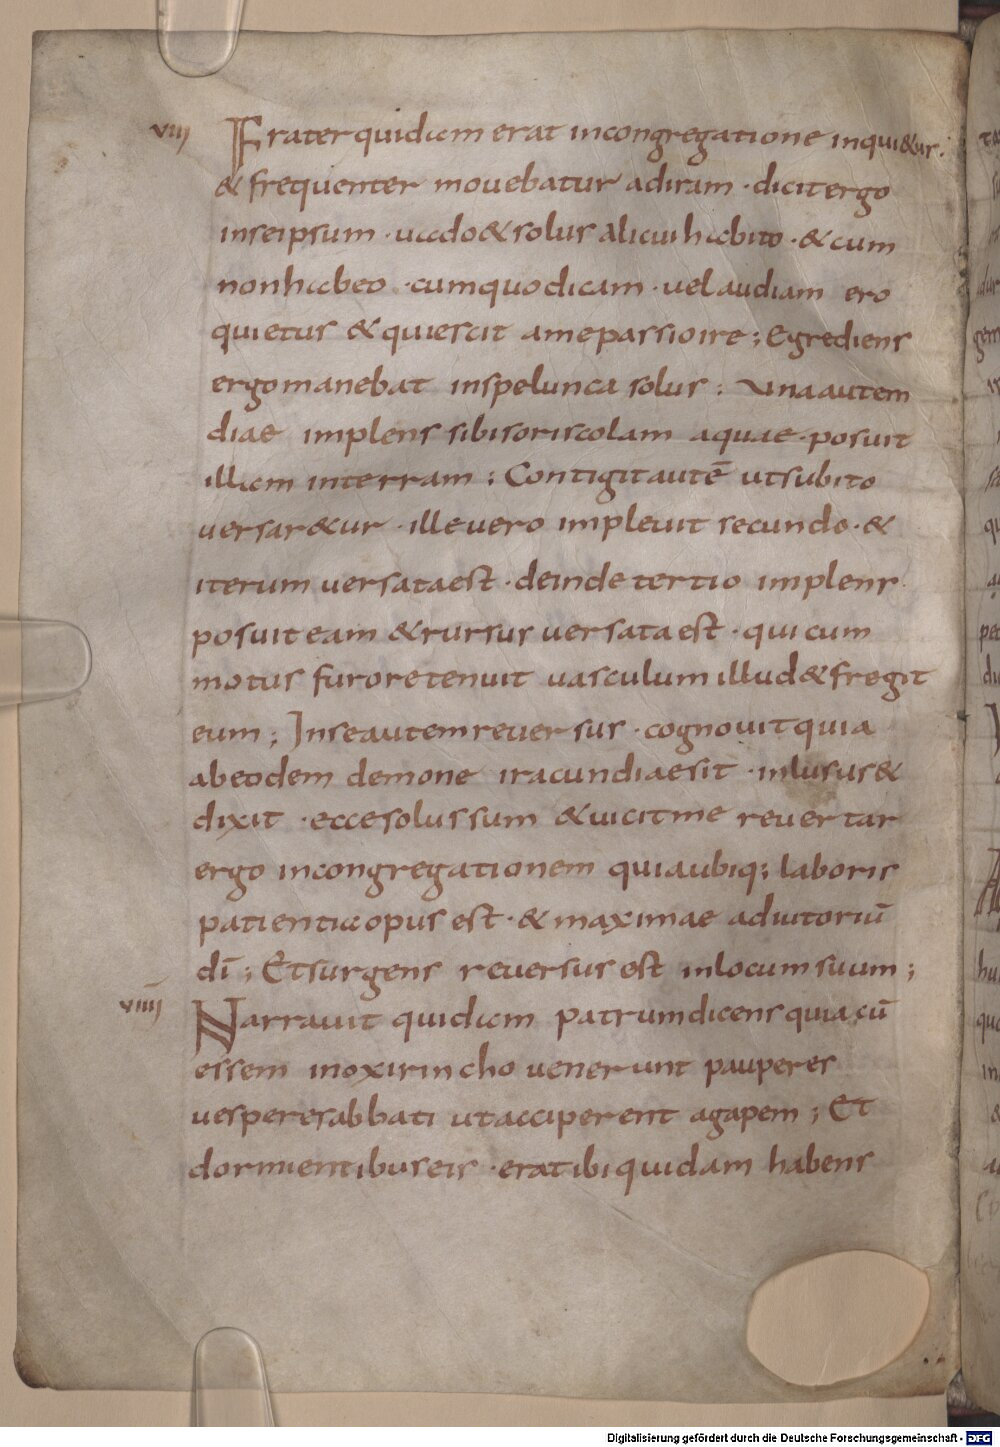 viii Frater quidam erat in congregatione inqui&ur·
& frequenter mouebatur ad iram · dicit ergo
in seipsum · uado & solus alicui habito · & cum
non habeo · cum quo dicam · uel audiam ero
quietus & quiescit a me passio ire ; Egrediens
ergo manebat in spelunca solus ; Una autem
diae implens sibi soriscolam aquae · posuit
illam in terram ; Contigit autē ut subito
uersar&ur · ille uero impleuit secundo · &
iterum uersata est · deinde tertio implens
posuit eam & rursus uersata est · qui cum
motus furore tenuit uasculum illud & fregit
eum ; In se autem reuersus · cognouit quia
ab eodem demone iracundiae sit · inlusus &
dixit · ecce solus sum & uicit me reuertar
ergo in congregationem quia ubiq; laboris
patientia opus est · & maximae adiutoriū
dī ; Et surgens reuersus est in locum suum ;
viiii Narrauit quidam patrum dicens quia cū
essem in oxirincho uenerunt pauperes
uespere sabbati ut acciperent agapem ; Et
dormientibus eis · erat ibi quidam habens
Digitalisierung gefördert durch die Deutsche Forschungsgemeinschaft - DFG